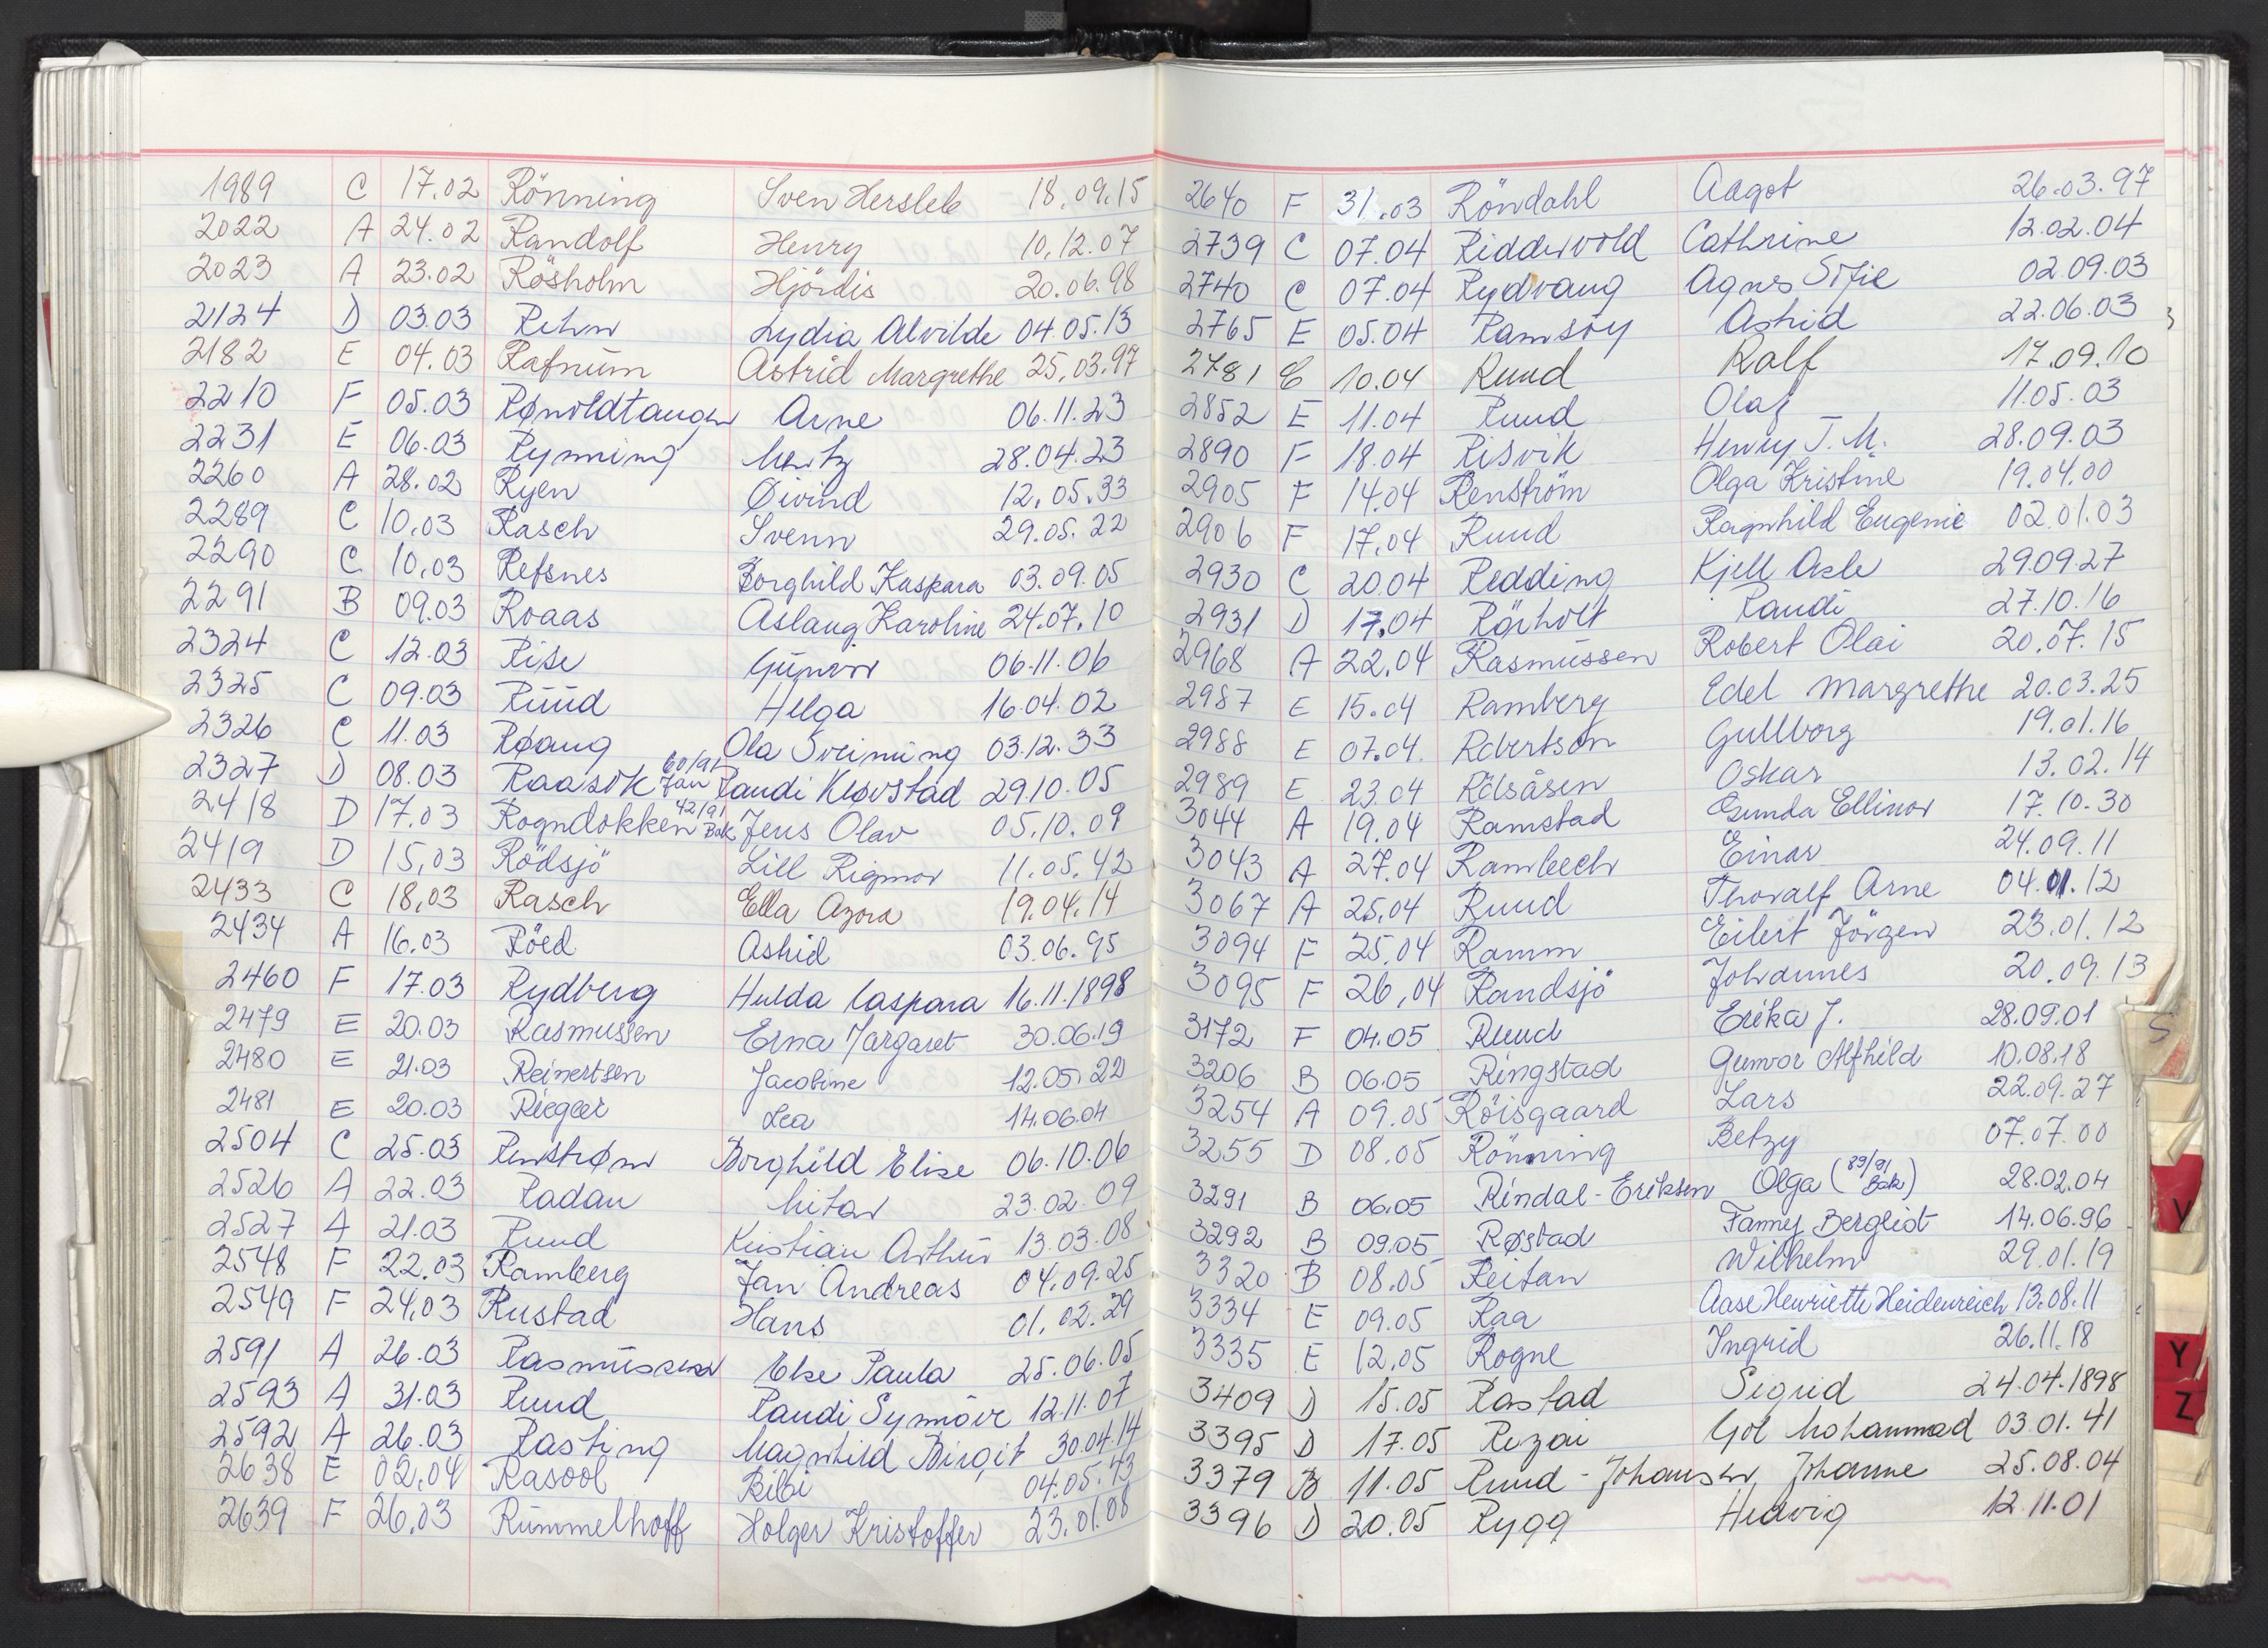 1989 C 17.02 Rönning Sven Hersleb 18.09.15
2022 A 24.02 Randolf Henry 10.12.07
2023 A 23.02 Rösholm Hjördis 20.06.98
2124 D 03.03 Rehn Lydia Alvilde 04.05.13
2182 E 04.03 Rafnum Astrid Margrethe 25.03.97
2210 F 05.03 Rønoldtangen Arne 06.11.23
2231 E 06.03 Rynning 28.04.23
2260 A 28.02 Ryen Øivind 12.05.33
2289 C 10.03 Rasch Svenn 29.05.22
2290 C 10.03 Refsnes Borghild Kaspara 03.09.05
2291 B 09.03 Roaas Aslaug Karoline 24.07.10
2324 C 12.03 Rise Gunvor 06.11.06
2325 C 09.03 Ruud Helga 16.04.02
2326 C 11.03 Røang Ola Sveinung 03.12.33
2327 D 08.03 Raasok 60/91 Jan Randi Kløvstad 29.10.05
2418 D 17.03 Rogndokken 42/91 Bak Jens Olav 05.10.09
2419 D 15.03 Rödsjö Lill Rigmor 11.05.42
2433 C 18.03 Rasch Ella Azora 19.04.14
2434 A 16.03 Röed Astrid 03.06.95
2460 F 17.03 Rydberg Hulda Caspara 16.11.1898
2479 E 20.03 Rasmussen Erna Margaret 30.06.19
2480 E 21.03 Reinertsen Jacobine 12.05.22
2481 E 20.03 Riegler Lea 14.06.04
2504 C 25.03 Renstrøm Borghild Elise 06.10.06
2526 A 22.03 Radan Mitar 23.02.09
2527 A 21.03 Ruud Kristian Arthur 13.03.08
2548 F 22.03 Ramberg Jan Andreas 04.09.25
2549 F 24.03 Rustad Hans 01.02.29
2591 A 26.03 Rasmussen Else Paula 25.06.05
2593 A 31.03 Ruud Randi Synnöve 12.11.07
2592 A 26.03 Rasting Magnhild Birgit 30.04.14
2638 E 02.04 Rasool Bibi 04.05.43
2639 F 26.03 Rummelhoff Holger Kristoffer 23.01.08
2640 F 31.03 Röndahl Aagot 26.03.97
2739 C 07.04 Riddervold Cathrine 12.02.04
2740 C 07.04 Rydvang Agnes Sofie 02.09.03
2765 E 05.04 Ramsöy Astrid 22.06.03
2781 C 10.04 Ruud Rolf 17.09.10
2852 E 11.04 Ruud Olaf 11.05.03
2890 F 18.04 Risvik Henry J. M. 28.09.03
2905 F 14.04 Renström Olga Kristine 19.04.00
2906 F 17.04 Ruud Ragnhild Eugenie 02.01.03
2930 C 20.04 Redding Kjell Asle 29.09.27
2931 D 17.04 Rörholt Randi 27.10.16
2968 A 22.04 Rasmussen Robert Olai 20.07.15
2987 E 15.04 Ramberg Edel Margrethe 20.03.25
2988 E 07.04 Robertson Gullborg 19.01.16
2989 E 23.04 Rölsåsen Oskar 13.02.14
3044 A 19.04 Ramstad Gunda Ellinor 17.10.30
3043 A 27.04 Rambech Einar 24.09.11
3067 A 25.04 Ruud Thoralf Arne 04.01.12
3094 F 25.04 Ramm Eilert Jörgen 23.01.12
3095 F 26.04 Randsjö Johannes 20.09.13
3172 F 04.05 Ruud Erika J. 28.09.01
3206 B 06.05 Ringstad Gunvor Alfhild 10.08.18
3254 A 09.05 Röisgaard Lars 22.09.27
3255 D 08.05 Rönning Betzy 07.07.00
3291 B 06.05 Rindal-Eriksen Olga (89/91 Bak) 28.02.04
3292 B 09.05 Røstad Fanny Bergliot 14.06.96
3320 B 08.05 Reitan Wilhelm 29.01.19
3334 E 09.05 Raa Aase Henriette Heidenreich 13.08.11
3335 E 12.05 Rogne Ingrid 26.11.18
3409 D 15.05 Rastad Sigrid 24.04.1898
3395 D 17.05 Rezai Gol Mohammad 03.01.41
3379 B 11.05 Ruud-Johansen Johanne 25.08.04
3396 D 20.05 Rygg Hedvig 12.11.01
S
V
Y
Z